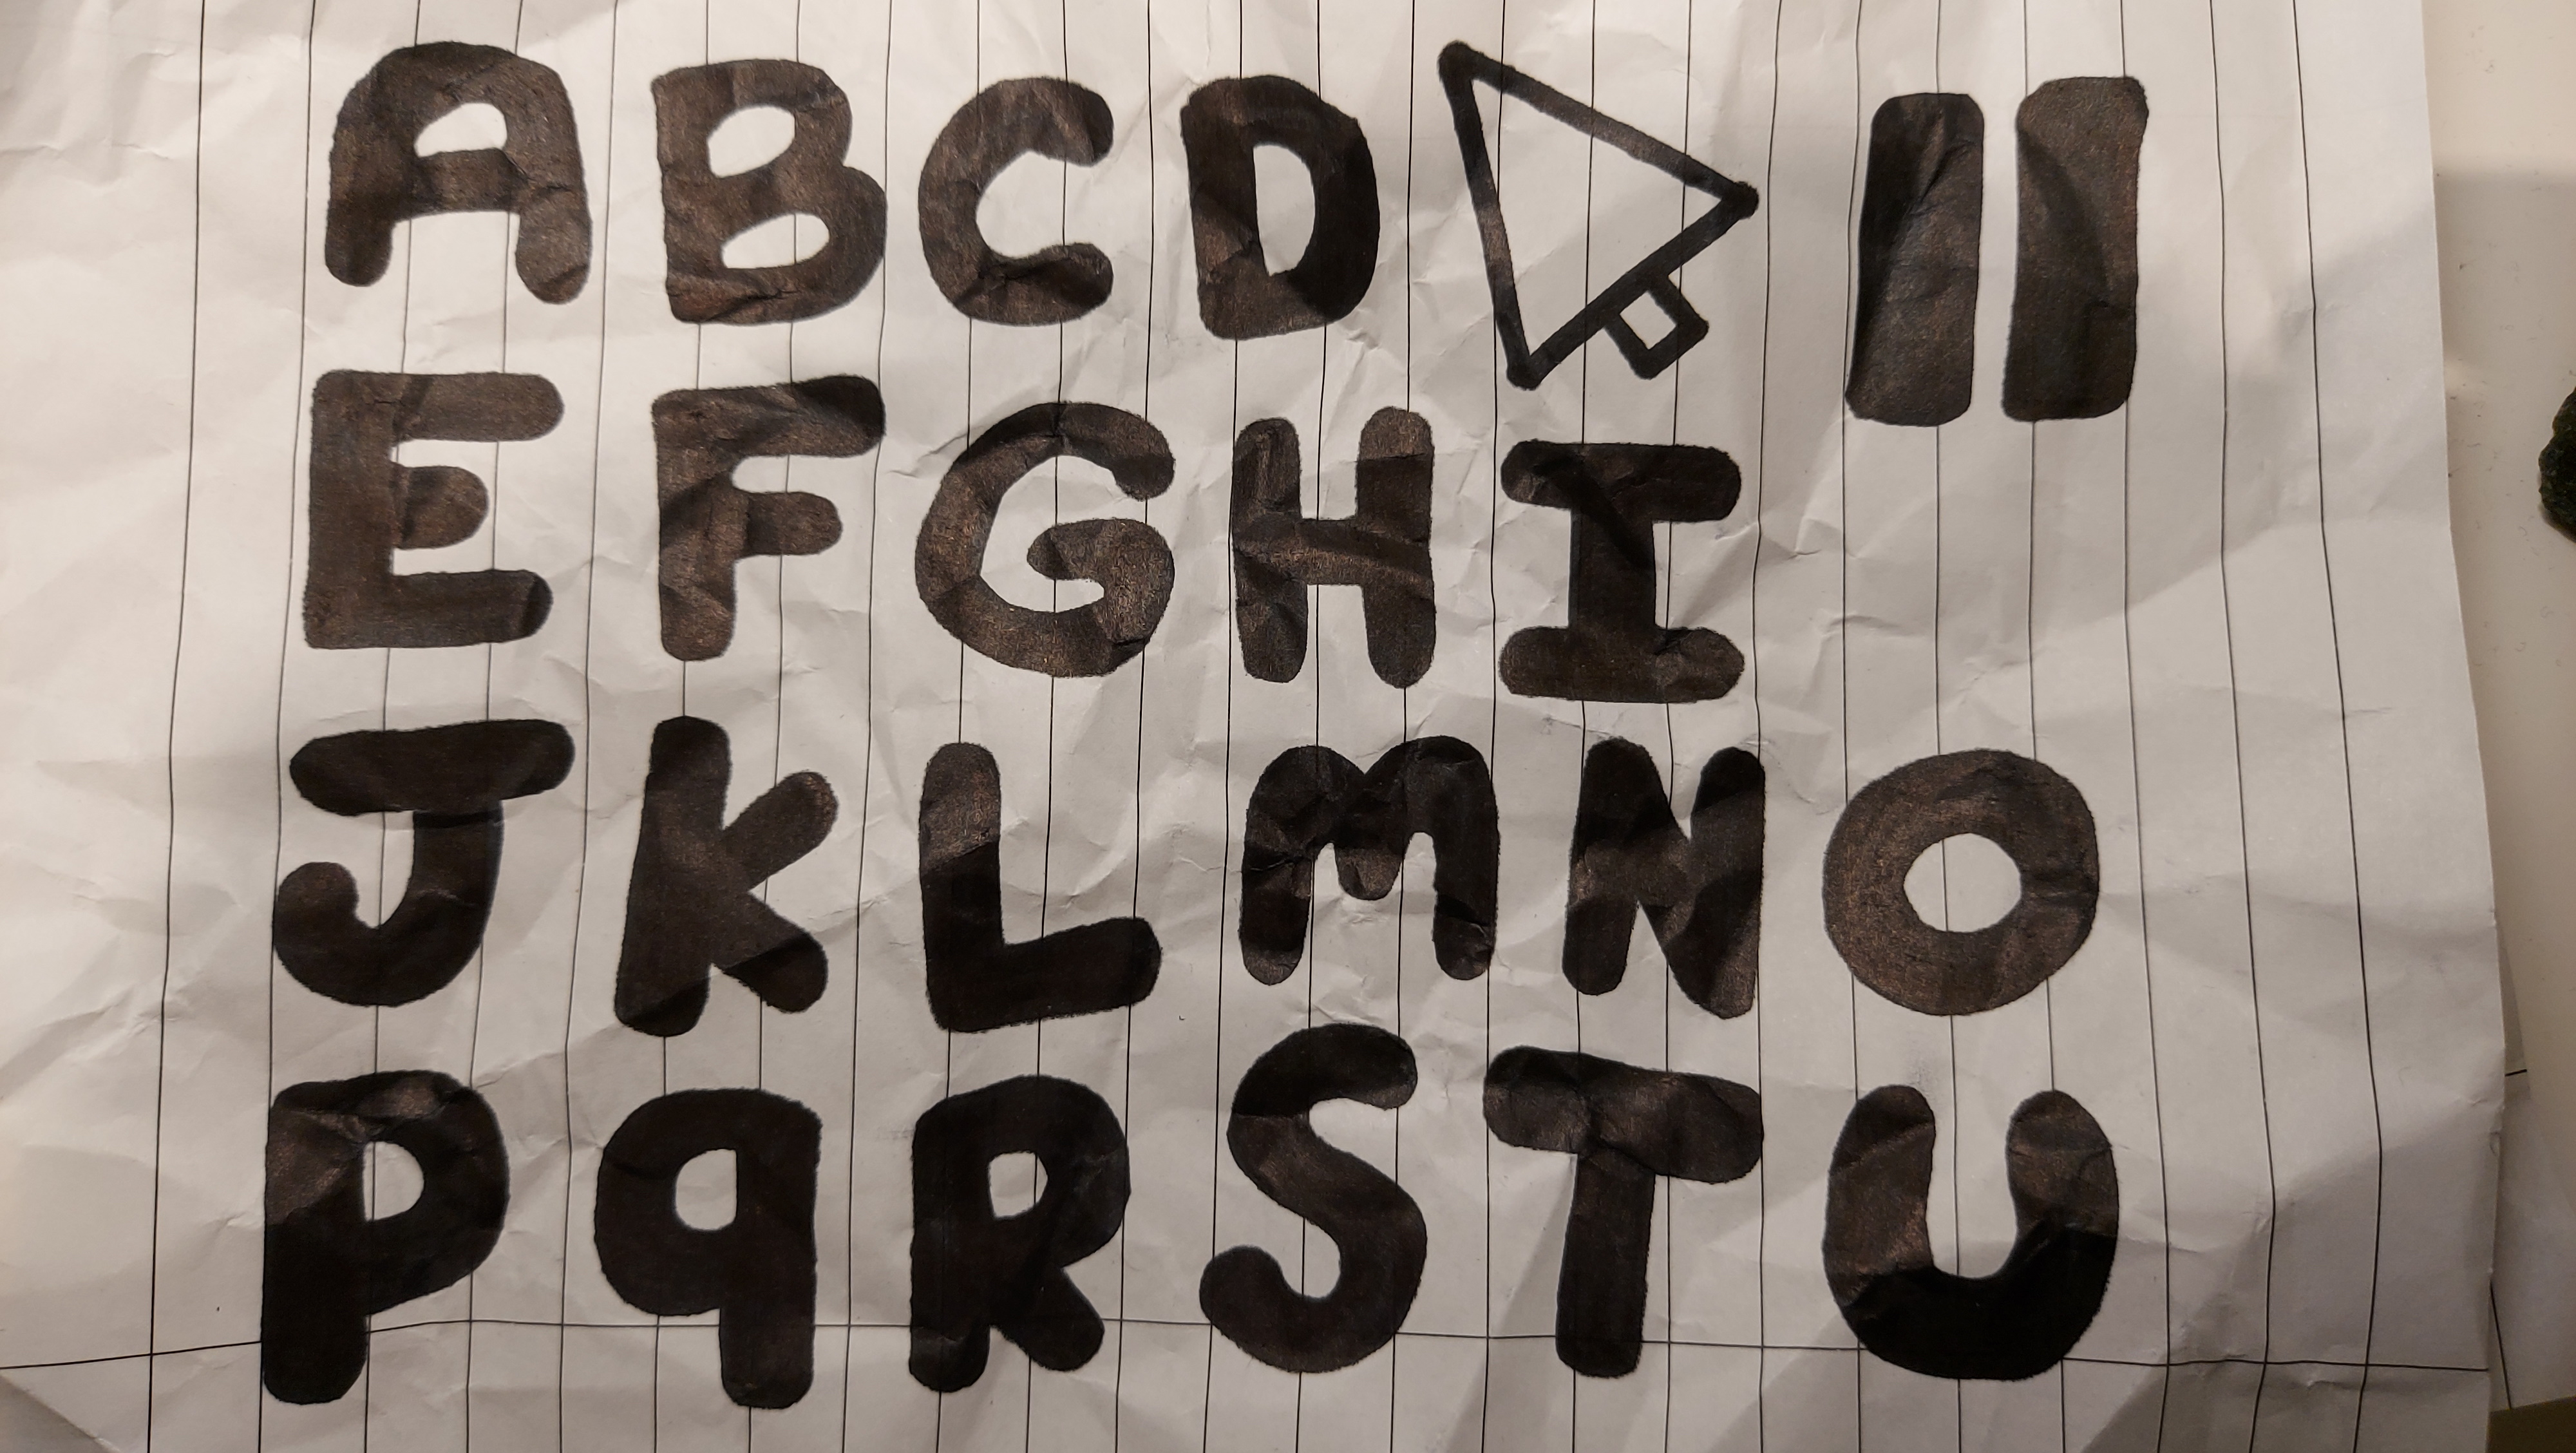 ABCD
EFGHI
JKLMNO
PqRSTU